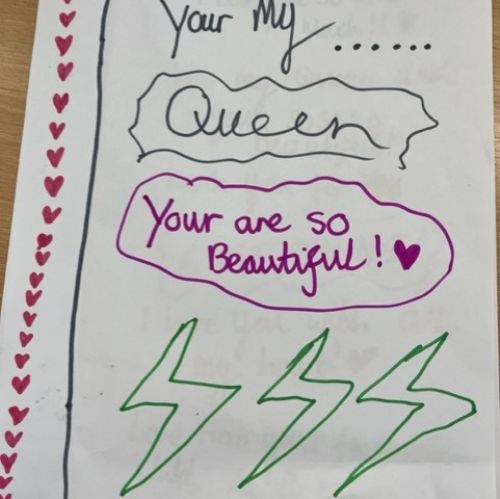 Your My ......
Queen
Your are so
Beautiful! ♥